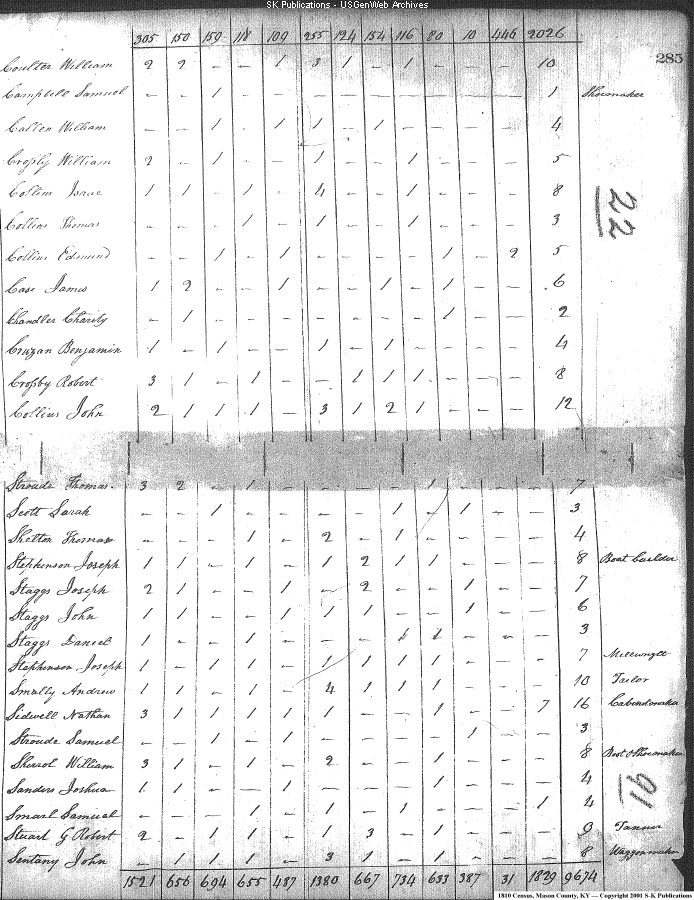 SK Publications - USGenWeb Archives
305 150 159 118 109 255 124 154 116 80 10 446 2026
285
Coulter William 2 2 - - 1 3 1 - 1 - - - 10
Campbell Samuel - - 1 - - - - - - - - - 1 Shoemaker
Callen William - - 1 - 1 1 - 1 - - - - 4
Crosby William 2 - 1 - - 1 - - 1 - - - 5
Collins Isaac 1 1 - 1 - 4 - - 1 - - - 8
22
Collins Thomas - - - 1 - 1 - - 1 - - - 3
Collins Edmund - - 1 - 1 - - - - 1 - 2 5
Case James 1 2 - - 1 - - 1 - 1 - - 6
Chandler Charity - 1 - - - - - - - 1 - - 2
Cruzan Benjamin 1 - 1 - - 1 - 1 - - - - 4
Crosby Robert 3 1 - 1 - - 1 1 1 - - - 8
Collins John 2 1 1 1 - 3 1 2 1 - - - 12
Stroude Thomas 3 2 - 1 - - - - - 1 - - 7
Scott Sarah - - 1 - - - - - 1 - 1 - 3
Shelton Thomas - - - 1 - 2 - - 1 - - - 4
Stephenson Joseph 1 1 - 1 - 1 2 1 1 - - - 8 Boat builder
Staggs Joseph 2 1 - - 1 - 2 - - - 1 - 7
Staggs John 1 1 - - 1 1 1 - - - 1 - 6
Staggs Daniel 1 - - 1 - - - - 1 1 - - 3
Stephenson Joseph 1 - 1 1 - 1 1 1 1 - - - 7 Millwright
Smally Andrew 1 1 - 1 - 4 1 1 1 - - - 10 Tailor
Sidwell Nathan 3 1 1 1 1 1 - - 1 - 7 16
Stroude Samuel - - 1 - 1 - - - - - 1 - 3
Sherrol William 3 1 - 1 - 2 - - - 1 - - 8 Boot & Shoemaker
Sanders Joshua 1 1 - - 1 - - - - 1 - - 4
91
Smarl Samuel - - - 1 - 1 - 1 - - - 1 4
Stuart G Robert 2 - 1 1 - 1 3 - - 1 - - 9 Tanner
John - 1 1 1 - 3 1 - - 1 - - 8 Waggonmaker
1521 656 694 655 487 1380 667 734 633 387 31 1829 9674
1810 Census, Mason County, KY — Copyright 2001 S-K Publications